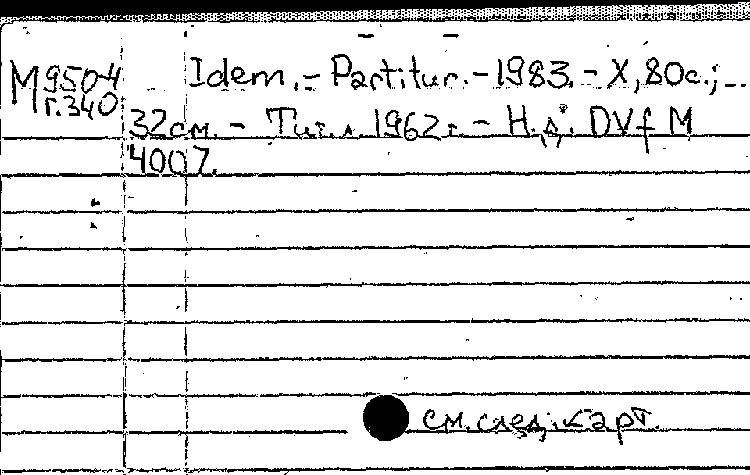 М 9504 Idem. - Partitur. - 1983. - X, 80с.;
г.340
32см. - Тит.л. 1962г. - Н.д. DVfM
4007.
см.след.карт.